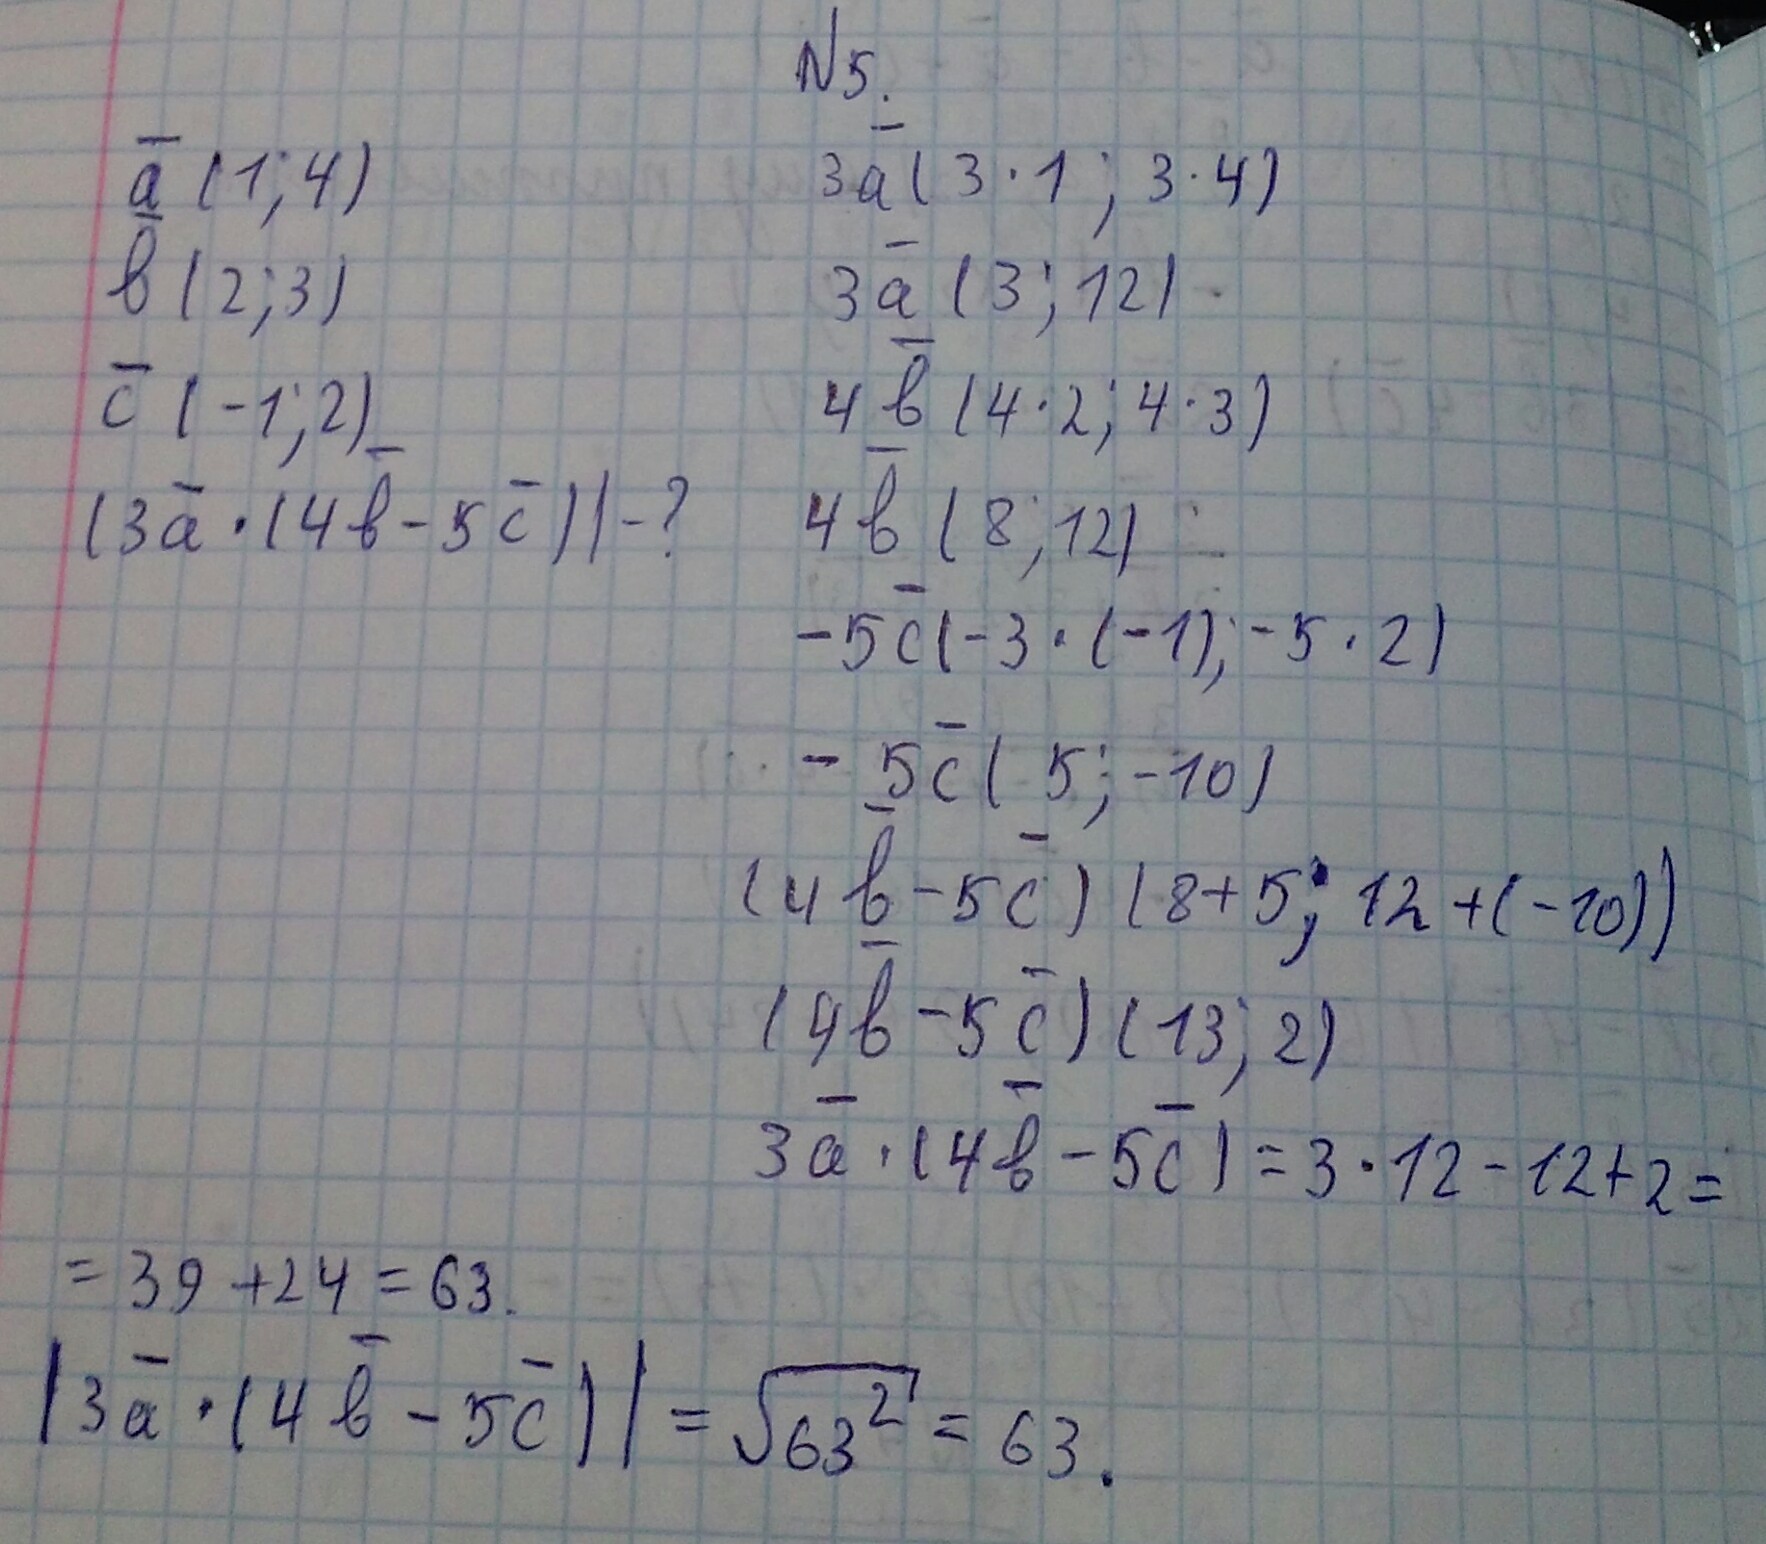 N5.
a̅ (1;4)
b̅ (2;3)
c̅ (-1;2)
(3a̅ · (4b̅ - 5c̅)| - ?
3a̅ (3·1; 3·4)
3a̅ (3; 12)
4b̅ (4·2; 4·3)
4b̅ (8; 12)
-5c̅ (-3·(-1); -5·2)
- 5c̅ ( 5; -10)
(4b̅ - 5c̅) (8+5; 12 +(-10))
(4b̅ - 5c̅) (13; 2)
3a̅ · (4b̅ - 5c̅) = 3·12 - 12+2 =
= 39 + 24 = 63.
|3a̅ · (4b̅ - 5c̅)| = √63² = 63.